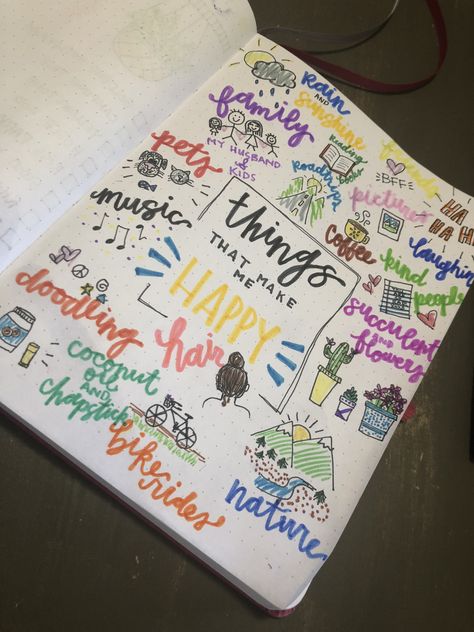 rain
AND
sunshine
family
MY HUSBAND
& KIDS
reading
books
friends
BFF
HA HA
HA HA
pets
roadtrips
pictures
music
things
THAT MAKE
ME
HAPPY
coffee
laughin
kind
people
doodling
hair
succulents
AND
flowers
coconut
oil
AND
chapstick
bike
rides
nature